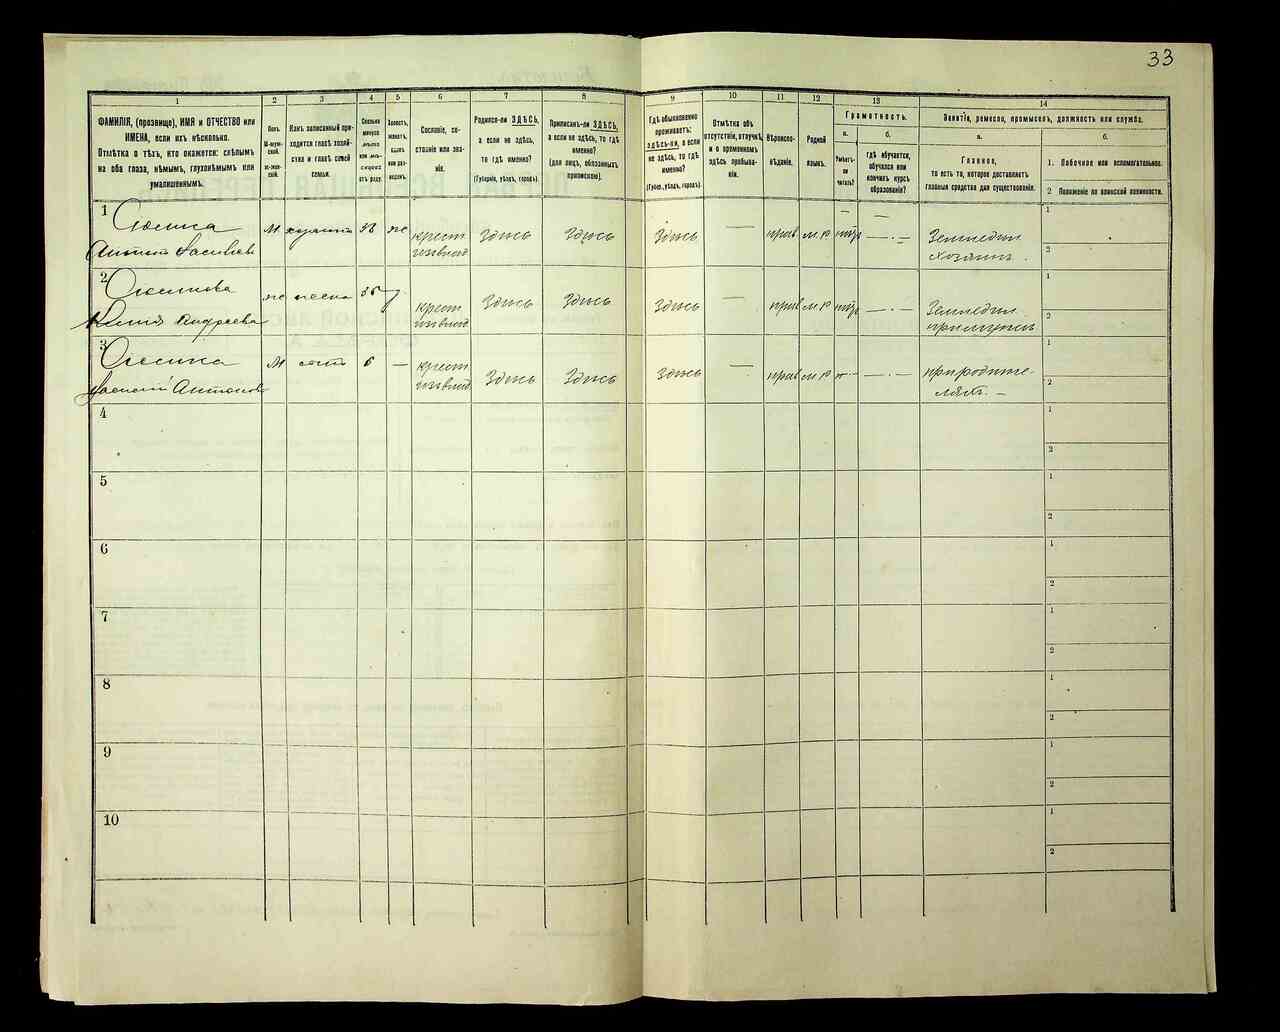 33
1 2 3 4 5 6 7 8 9 10 11 12 13 14
ФАМИЛІЯ, (прозвище), ИМЯ и ОТЧЕСТВО или
ИМЕНА, если ихъ нѣсколько.
Отмѣтка о тѣхъ, кто окажется: слѣпымъ
на оба глаза, нѣмымъ, глухонѣмымъ или
умалишеннымъ.
Полъ.
М-муж-
ской.
Ж-жен-
скій.
Какъ записанный при-
ходится главѣ хозяй-
ства и главѣ своей
семьи.
Сколько
минуло
лѣтъ
или мѣ-
сяцевъ
отъ роду.
Холостъ,
женатъ,
вдовъ
или раз-
веденъ.
Сословіе, со-
стояніе или зва-
ніе.
Родился-ли ЗДѢСЬ,
а если не здѣсь,
то гдѣ именно?
(Губернія, уѣздъ, городъ).
Приписанъ-ли ЗДѢСЬ,
а если не здѣсь, то гдѣ
именно?
(для лицъ, обязанныхъ
припискою).
Гдѣ обыкновенно
проживаетъ:
здѣсь-ли, а если
не здѣсь, то гдѣ
именно?
(Губер., уѣздъ, городъ).
Отмѣтка объ
отсутствіи, отлучкѣ
и о временномъ
здѣсь пребыва-
ніи.
Вѣроиспо-
вѣданіе.
Родной
языкъ.
Грамотность.
а.
Умѣетъ-
ли
читать?
б.
гдѣ обучается,
обучался или
кончилъ курсъ
образованія?
Занятіе, ремесло, промыселъ, должность или служба.
а.
Главное,
то есть то, которое доставляетъ
главныя средства для существованія.
б.
1. Побочное или вспомогательное.
2 Положеніе по воинской повинности.
1
М 38 крест Здѣсь Здѣсь Здѣсь — прав м.р — Земледѣл
Антонъ хозяинъ
1
2
2
35 крест Здѣсь Здѣсь Здѣсь — прав м.р — Земледѣл
Андреева
1
2
3
М сынъ 6 — крест Здѣсь Здѣсь Здѣсь — прав м.р — при родите-
Антоновъ лях. —
1
2
4
1
2
5
1
2
6
1
2
7
1
2
8
1
2
9
1
2
10
1
2